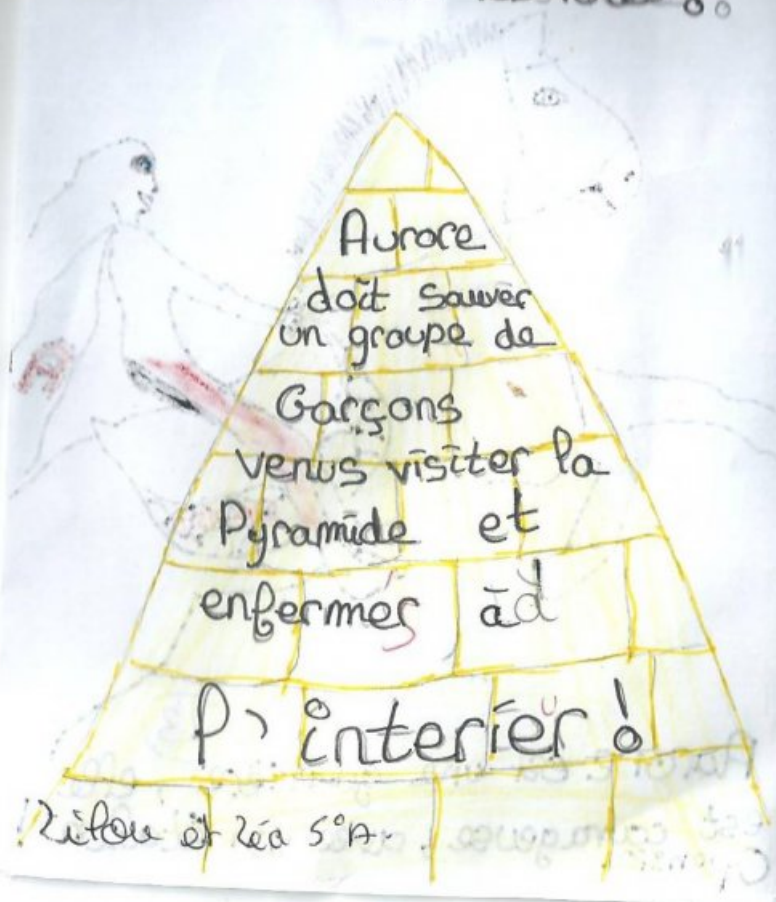 Aurore
doit sauver
un groupe de
Garçons
venus visiter la
Pyramide et
enfermés à
l'interieur !
Lilou et Léa 5°A.